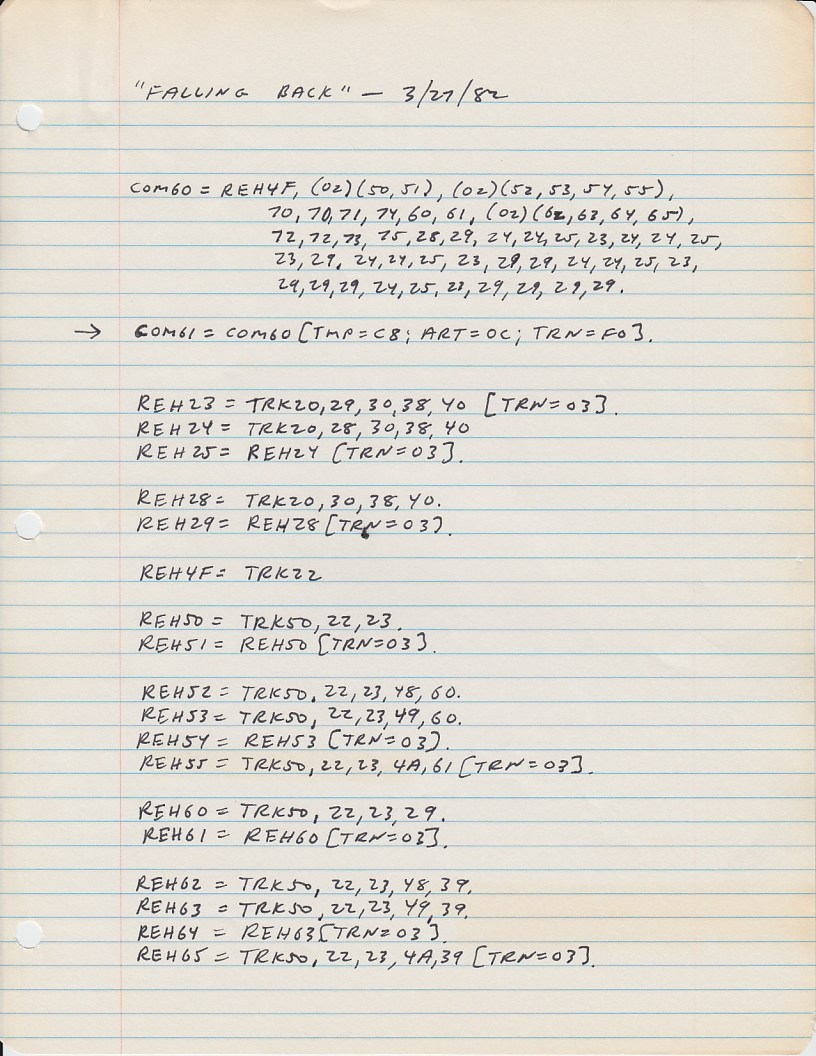 "FALLING BACK" — 3/27/82
COM60 = REH4F, (02)(50,51), (02)(52,53,54,55),
70,70,71,74,60,61,(02)(62,63,64,65),
72,72,73,75,28,29,24,24,25,23,24,24,25,
23,29,24,24,25,23,29,29,24,24,25,23,
29,29,29,24,25,23,29,29,29,29.
→ COM61 = COM60 [TMP=C8; ART=0C; TRN=F0].
REH23 = TRK20,29,30,38,40 [TRN=03].
REH24 = TRK20,28,30,38,40
REH25 = REH24 [TRN=03].
REH28 = TRK20,30,38,40.
REH29 = REH28 [TRN=03].
REH4F = TRK22
REH50 = TRK50,22,23.
REH51 = REH50 [TRN=03].
REH52 = TRK50,22,23,48,60.
REH53 = TRK50,22,23,49,60.
REH54 = REH53 [TRN=03].
REH55 = TRK50,22,23,4A,61 [TRN=03].
REH60 = TRK50,22,23,29.
REH61 = REH60 [TRN=03].
REH62 = TRK50,22,23,48,39.
REH63 = TRK50,22,23,49,39.
REH64 = REH63 [TRN=03].
REH65 = TRK50,22,23,4A,39 [TRN=03].